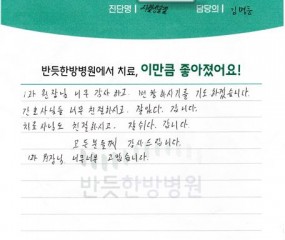 진단명 | 담당의 |
반듯한방병원에서 치료, 이만큼 좋아졌어요!
1과 원장님 너무 감사 하고. 번창 하시기를 기도 하겠습니다.
간호사님들 너무 친절하시고. 잘있다. 갑니다.
치료사님도 친절하시고. 잘쉬다. 갑니다.
모든분들께 감사드립니다.
1과 원장님. 너무너무 고맙습니다.
반듯한방병원